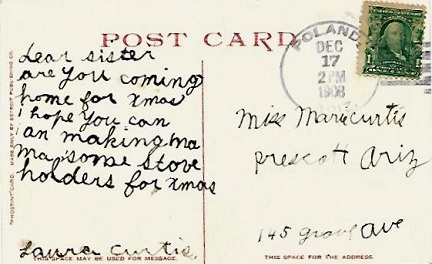 POST CARD
Dear sister
are you coming
home for xmas
i hope you can
i an making ma
Map some stove
holders for xmas
Laura Curtis.
THIS SPACE MAY BE USED FOR MESSAGE.
POLAND
DEC
17
2 PM
1908
1
Miss Marie curtis
prescott Ariz
145 grove Ave
THIS SPACE FOR THE ADDRESS.
"PHOSTINT" CARD. MADE ONLY BY DETROIT PUBLISHING CO.